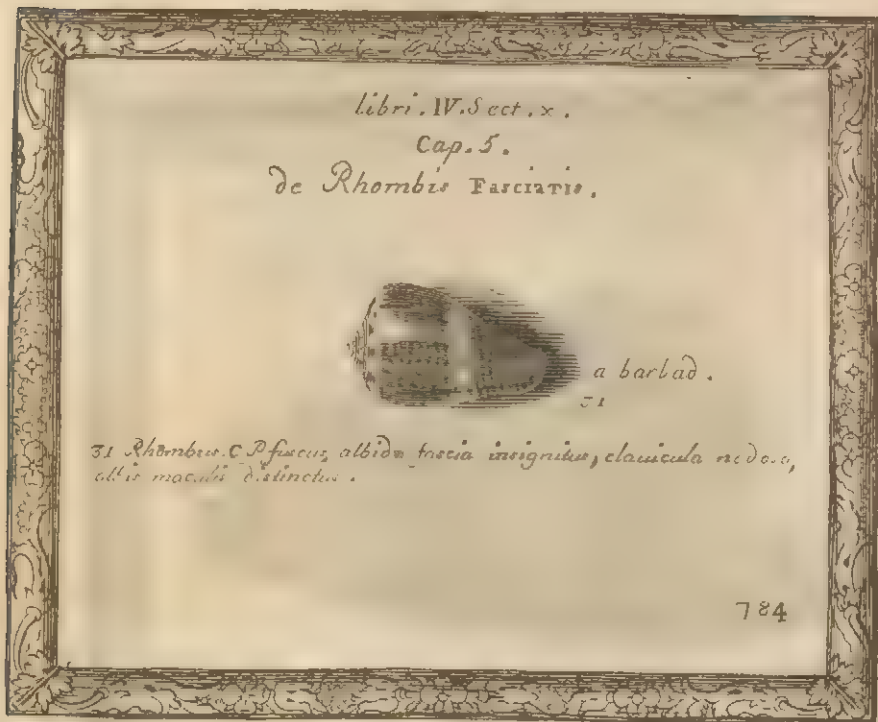 libri. IV. Sect. x.
Cap. 5.
de Rhombis Fasciatis.
a barbad.
31
31 Rhombus. C P fuscus, albida fascia insignitus, clauicula nodosa,
albis maculis distinctus.
784